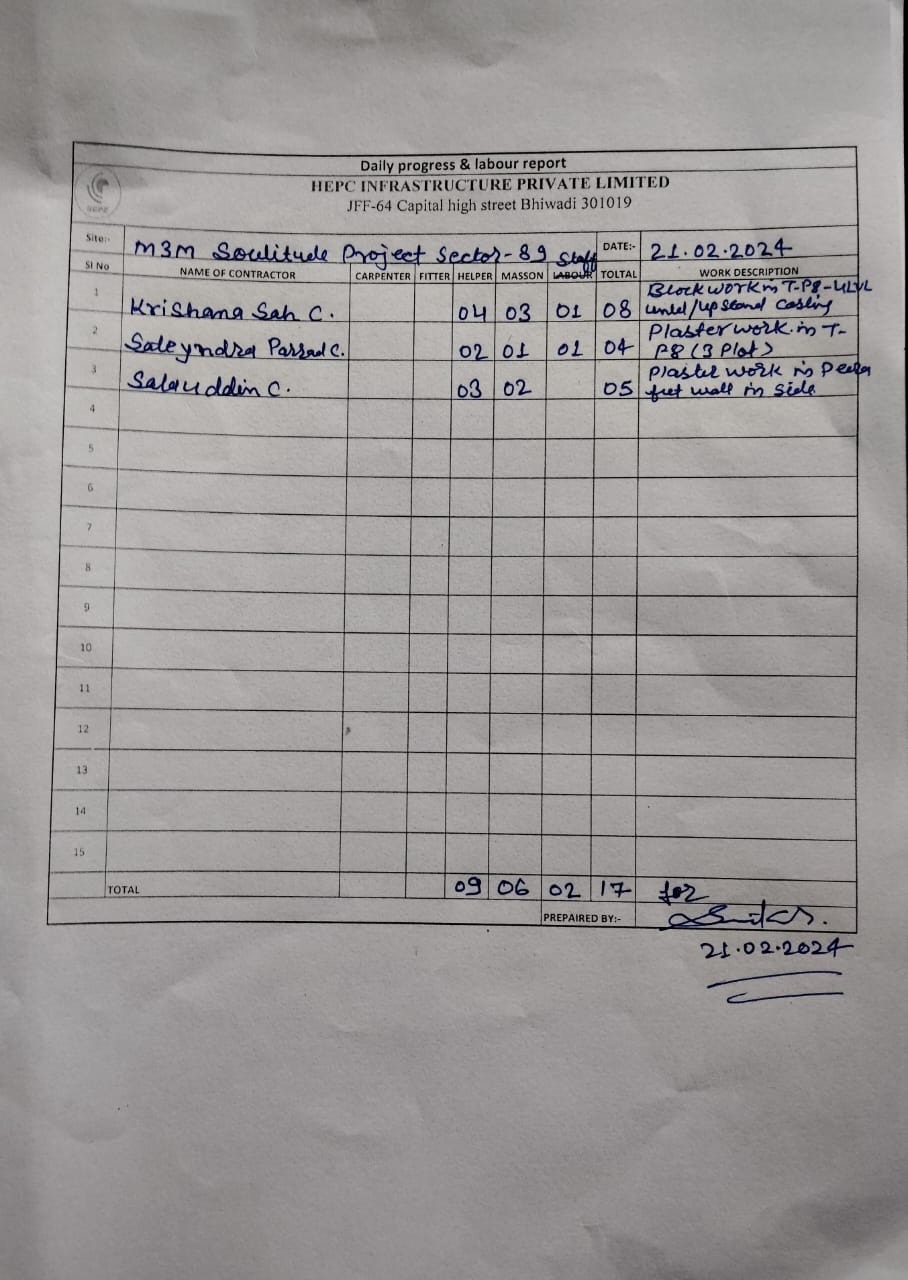 Daily progress & labour report
HEPC INFRASTRUCTURE PRIVATE LIMITED
JFF-64 Capital high street Bhiwadi 301019
HEPC
Site:- M3M Soulitude Project Sector-89 DATE:- 21.02.2024
Staff
SI No NAME OF CONTRACTOR CARPENTER FITTER HELPER MASSON LABOUR TOLTAL WORK DESCRIPTION
1 Krishana Sah C. 04 03 01 08 Block work in T-P8-
/up stand casting
2 Sateyndra Parsad C. 02 01 01 04 Plaster work in T-
P8 (3 Plot)
3 Salauddin C. 03 02 05 Plaster work in
wall in side
4
5
6
7
8
9
10
11
12
13
14
15
TOTAL 09 06 02 17 for
PREPAIRED BY:-
21.02.2024